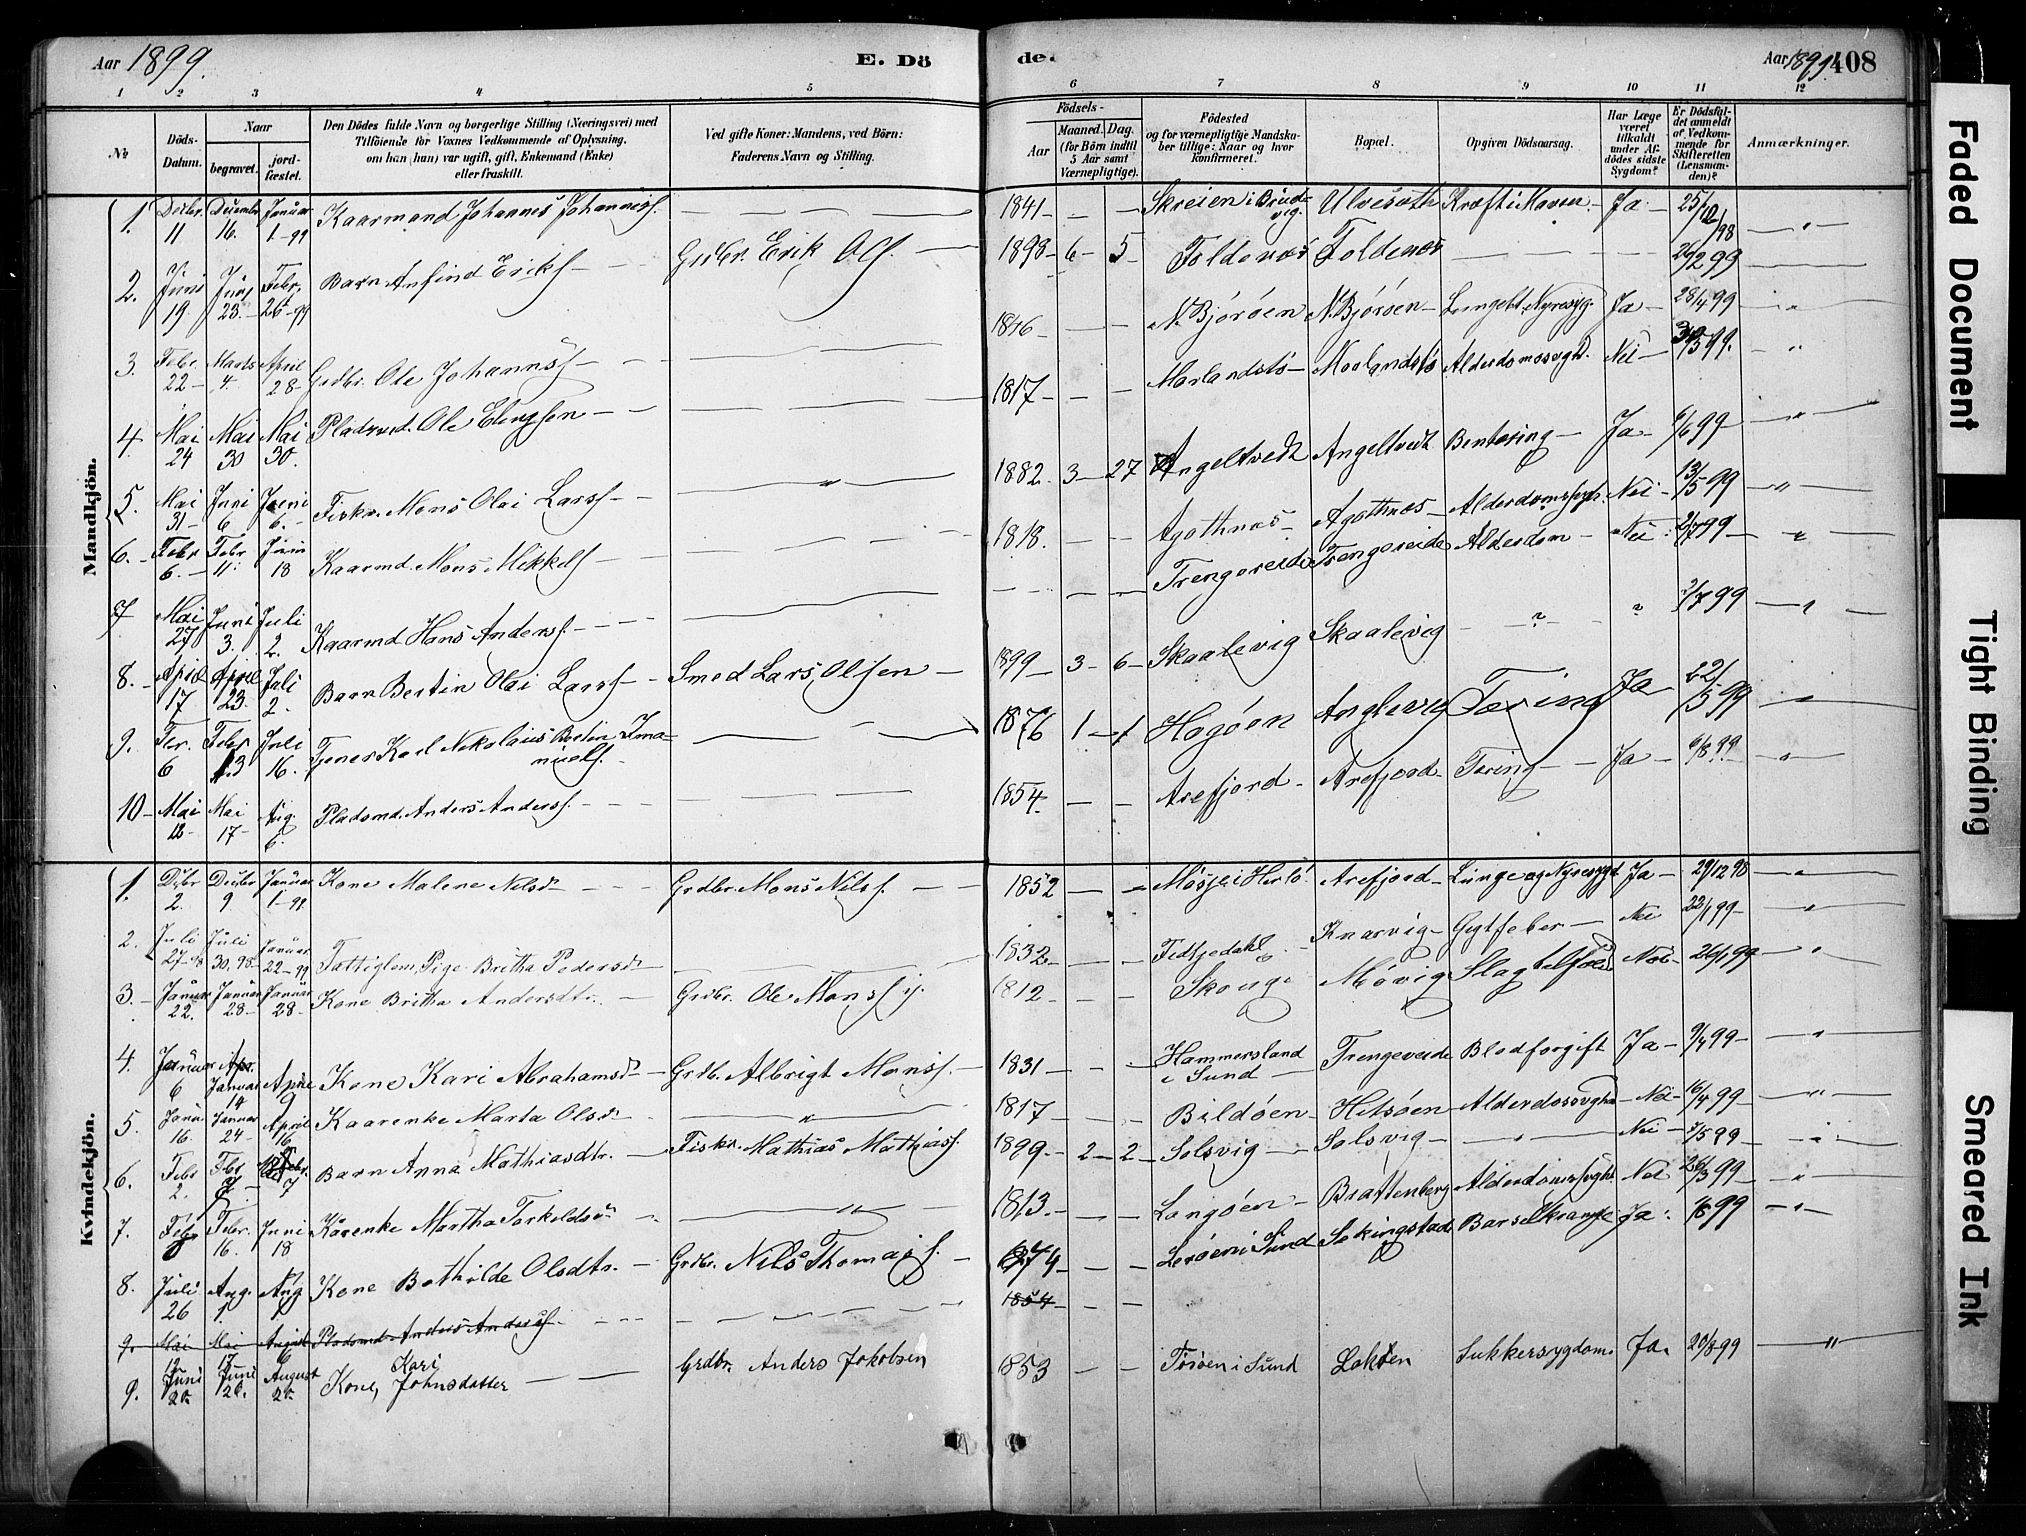 Aar 1899. E. Dö de. Aar 1899. 408
1 2 3 4 5 6 7 8 9 10 11 12
No
Döds-Datum.
Naar
begravet.
jord-fæstet.
Den Dödes fulde Navn og borgerlige Stilling (Næringsvei) med
Tilföiende for Voxnes Vedkommende af Oplysning,
om han (hun) var ugift, gift, Enkemand (Enke)
eller fraskilt.
Ved gifte Koner: Mandens, ved Börn:
Faderens Navn og Stilling.
Födsels-
Aar
Maaned. Dag.
(for Börn indtil
5 Aar samt
Værnepligtige).
Födested
og for værnepligtige Mandska-
ber tillige: Naar og hvor
konfirmeret.
Bopæl.
Opgiven Dödsaarsag.
Har Læge
været
tilkaldt
under Af-
dödes sidste
Sygdom?
Er Dödsfal-
det anmeldt
af Vedkom-
mende for
Skifteretten
(Lensman-
den)?
Anmærkninger.
Mandkjön.
1. Decbr. 11 Decembr 16. Januar 1-99 Kaarmand Johannes Johanness. 1841 Skreien i Brudvig. Ulvesæth Kræft i Maven Ja 25/12 98
2. Juni 19 Juni 23. Febr. 26-99 Barn Anfind Eriks. Grdbr. Erik Ols. 1898 6 5 Foldenæs Foldenæs 26/2 99
3. Febr 22 Marts 4. April 28 Grdbr. Ole Johanns. 1846 N. Bjørøen N. Bjørøen Nyresyg. Ja 28/4 99
4. Mai 24 Mai 30 Mai 30. Pladsmd. Ole Elingsen 1817 Morlandstø Alderdomssvghd. Nei 99.
5. Mai 31 Juni 6 Juni 6. Fisker Mons Olai Larss. 1882 3 27 Angeltvedt Angeltvedt Bentæring Ja 6/6 99
6. Febr 6. Febr 11. Juni 18 Kaarmd. Mons Mikkels. 1818. Agothnæs Agothnæs Nei 13/5 99
7 Mai 27 Juni 3. Juli 2. Kaarmd Hans Anderss. Trengereide Trengereide Alderdom Nei 2/7 99
8. April 17 April 23. Juli 2. Barn Bertin Olai Larss. Smed Lars Olsen 1899 3 6 Skaalevig Skaalevig ? ? 2/7 99
9. Febr. 6 Febr 13 Juli 16. Tjener Karl Nikolaus Bertin Imanuels. 1876 1 1 Høgøen Anglevig Tæring Ja 22/5 99
10 Mai 12 Mai 17 Aug. 6. Pladsmd. Anders Anderss. 1854 Arefjord Arefjord Tæring Ja 6/8 99
Kvindekjön.
1. Decbr 2. Decbr 9 Januar 1-99 Kone Malene Nilsd. Grdbr. Mons Nilss. 1852 Mosje i Herlø Arefjord Lunge og Nyresygd Ja 29/12 98
2. Juli 27-98 Juli 30, 98 Januar 22-99 Fattiglem, Pige Britha Pedersd. 1832 Knarvig Gigtfeber Nei 22/1 99
3. Januar 22. Januar 28 Januar 28 Kone Britha Andersdtr. Grdbr. Ole Monss. 1812 Skouge Møvig Slagtilfæld Nei 26/1 99
4. Januar 6 Januar 14 April 9 Kone Kari Abrahamsd. Grdb. Albrigt Monss. 1831 Hammersland i Sund Trengereide Blodforgift Ja 9/4 99
5. Januar 16. Januar 24 April 16 Kaarenke Marta Olsd. 1817 Bildøen Hetsøen Nei 16/4 99
6. Febr 2. Febr 7 Febr. 7 Barn Anna Mathiasdtr. Fisker Mathias Mathiass. 1899 2 2 Solsvig Solsvig Nei 99
7. Febr Febr. 16. Juni 18 Kårenke Martha Torkeldsd. 1813. Langøen Brattenberg Alderdomssvghd Nei 99
8. Juli 26 Aug. 1. Aug 1 Kone Bothilde Olsdtr. Grdbr. Nils Thomass. 1874 Lerøen i Sund Sekingstad Barselkrampe Ja 99
9. Mai 12 Mai 17 August 6 Pladsmd. Anders Anderss. 1854
9. Juni 20. Juni 26. August 20. Kone, Kari Johnsdatter Grdbr. Anders Jakobsen 1853 Tørøen i Sund Lokøen Sukkersygdom Ja. 20/8 99
Faded Document
Tight Binding
Smeared Ink